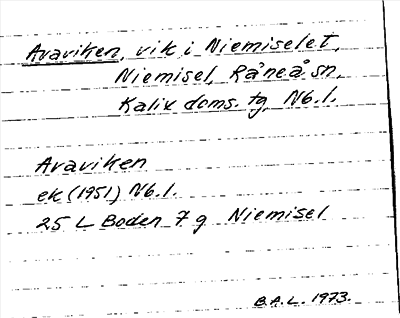 Avaviken, vik i Niemiselet,
Niemisel, Råneå sn,
Kalix doms. tg, Nb.l.
Avaviken
ek (1951) Nb.l.
25 L Boden 7 g Niemisel
B.A.L. 1973.